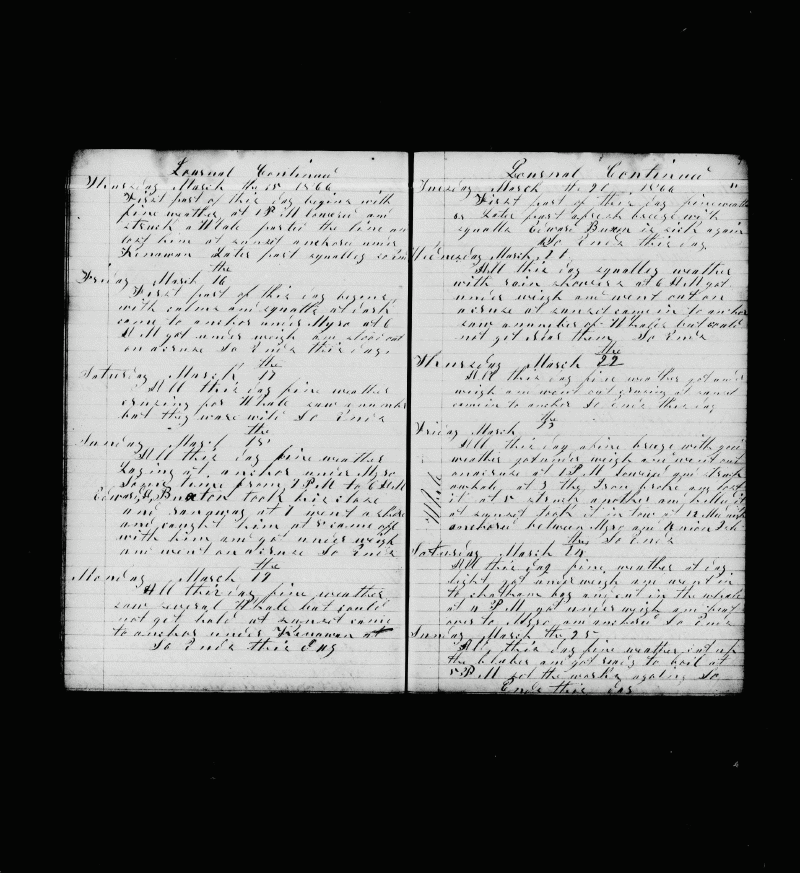 Journal Continued
Thursday March the 15 1866
First part of this day begins with
fine weather at 1 P M lowered and
struck a Whale parted the line and
lost him at sunset anchored under
Kenawan Later part squalley
the
Friday March 16
First part of this day begins
with calms and squalls at dark
came to anchor under Myro at 6
A M got under weigh and stood out
on a cruse So Ends this day
the
Saturday March 17
All this day fine weather
cruzing for Whale saw a number
but they ware wild So Ends
the
Sunday March 18
All this day fine weather
Laying at anchor under Myro
Some time from 7 P M to 6 A M
Edward H Buxton took his close
and ranaway at 7 went ashore
and caught him at 8 came off
with him and got under weigh
and went on a cruse So Ends
the
Monday March 19
All this day fine weather
saw several Whale but could
not get hold at sunset came
to anchor under Kenawan at
So Ends this day
Journal Continued
Tuesday March th 20 1866
First part of this day fine weather
Later part a fresh breeze with
squalls Edward Buxon is sick again
So Ends this day
Wednesday March 21
All this day squalley weather
with rain showers at 6 A M got
under weigh and went out on
a cruse at sunset came in to anchor
saw a number of Whales but could
not get near them So Ends
the
Thursday March 22
All this day fine weather got under
weigh and went out cruzing at sunset
came in to anchor So Ends this day
the
Friday March 23
All this day a fine breze with good
weather got under weigh and went out
on a cruse at 1 P M Lowered and struck
a whale at 3 the Iron broke and lost
it at 5 struck another and killed it
at sunset took it in tow at 12 Mid night
anchored between Myro and Union Isl
Whale
the So Ends
Saturday March 24
All this day fine weather at day
light got under weigh and went in
to chatham bay and cut in the whale
at 4 P M got under weigh and beat
over to Myro and anchored So Ends
Sunday March the 25
All this day fine weather cut up
the blubber and got ready to boil at
5 P M got the works agoing So
Ends this day